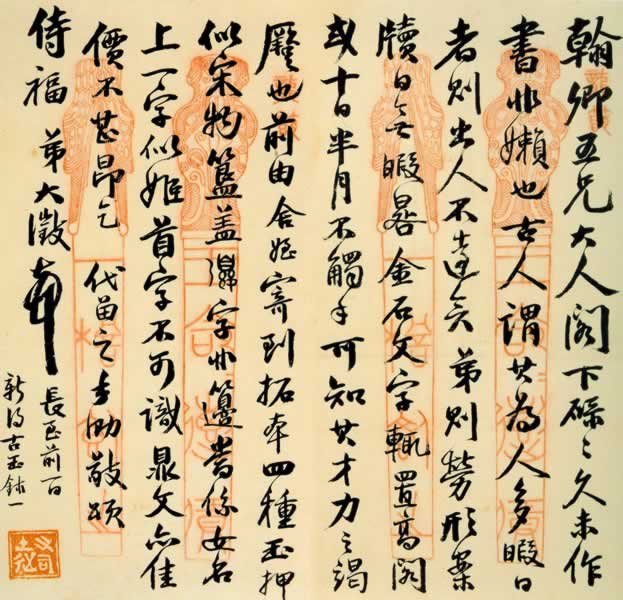 翰卿五兄大人閣下碌〻久未作
書非嬾也古人謂其為人多暇日
者則出人不遠矣弟則勞形案
牘日無暇晷金石文字輒置高閣
或十日半月不觸手可知其才力之竭
蹷也前由舍姪寄到拓本四種玉押
似宋物簠盖字非籩當係女名
上一字似姬首字不可識鼎文亦佳
價不甚昂乞 代留之專泐敬頌
侍福 弟大澂頓首
長至前一日
新得古玉鉥一